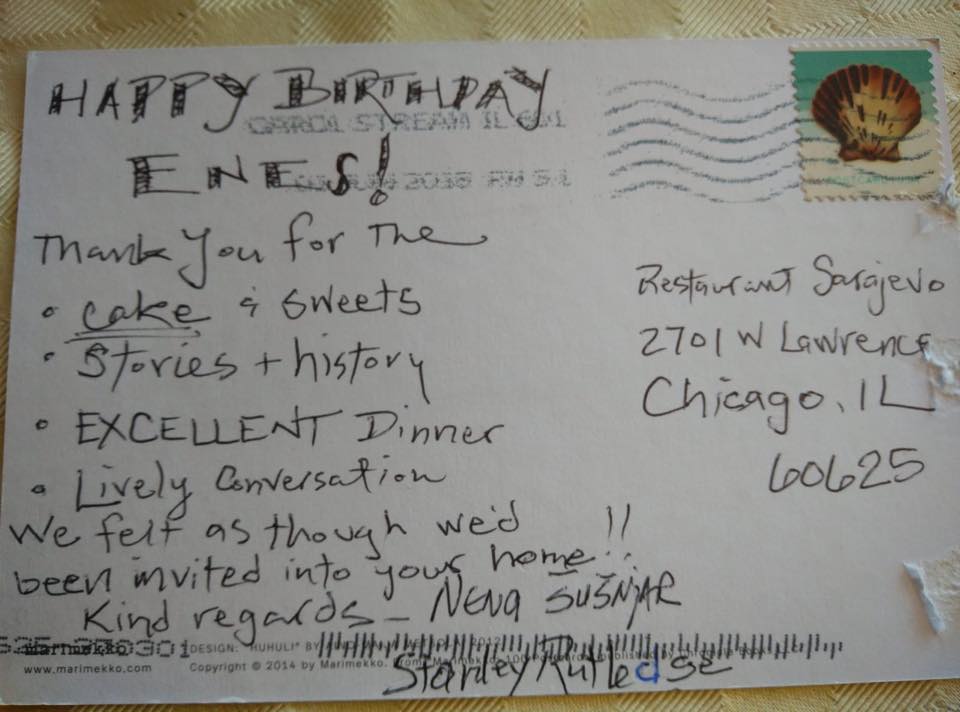 HAPPY BIRTHDAY
ENES!
CAROL STREAM IL 601
2015 PM 3 L
Thank you for the
• cake & sweets
• Stories + history
• EXCELLENT Dinner
• Lively Conversation
We felt as though we'd
been invited into your home!!
Kind regards - NENA SUŠNJAR
Stanley Rutledge
Restaurant Sarajevo
2701 W Lawrence
Chicago, IL
60625
marimekko DESIGN: "HUHULI" BY 2012
www.marimekko.com Copyright © 2014 by Marimekko. From Marimekko: 100 Postcards, published by Chronicle